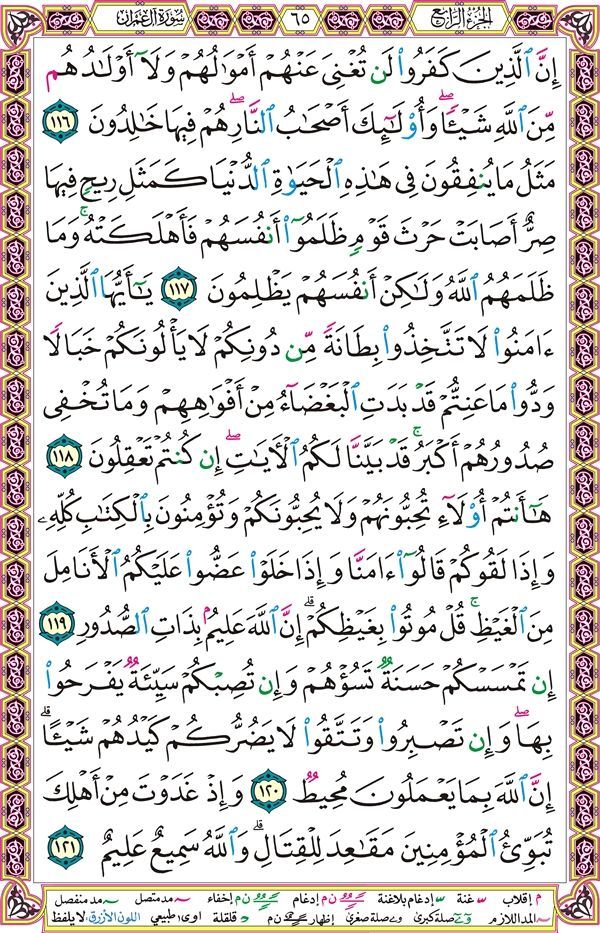 الجزء الرابع ٦٥ سورة آل عمران
إِنَّ ٱلَّذِينَ كَفَرُوا۟ لَن تُغْنِىَ عَنْهُمْ أَمْوَٰلُهُمْ وَلَآ أَوْلَـٰدُهُم
مِّنَ ٱللَّهِ شَيْـًٔا ۖ وَأُو۟لَـٰٓئِكَ أَصْحَـٰبُ ٱلنَّارِ ۖ هُمْ فِيهَا خَـٰلِدُونَ ١١٦
مَثَلُ مَا يُنفِقُونَ فِى هَـٰذِهِ ٱلْحَيَوٰةِ ٱلدُّنْيَا كَمَثَلِ رِيحٍ فِيهَا
صِرٌّ أَصَابَتْ حَرْثَ قَوْمٍ ظَلَمُوٓا۟ أَنفُسَهُمْ فَأَهْلَكَتْهُ ۚ وَمَا
ظَلَمَهُمُ ٱللَّهُ وَلَـٰكِنْ أَنفُسَهُمْ يَظْلِمُونَ ١١٧ يَـٰٓأَيُّهَا ٱلَّذِينَ
ءَامَنُوا۟ لَا تَتَّخِذُوا۟ بِطَانَةً مِّن دُونِكُمْ لَا يَأْلُونَكُمْ خَبَالًا
وَدُّوا۟ مَا عَنِتُّمْ قَدْ بَدَتِ ٱلْبَغْضَآءُ مِنْ أَفْوَٰهِهِمْ وَمَا تُخْفِى
صُدُورُهُمْ أَكْبَرُ ۚ قَدْ بَيَّنَّا لَكُمُ ٱلْـَٔايَـٰتِ ۖ إِن كُنتُمْ تَعْقِلُونَ ١١٨
هَـٰٓأَنتُمْ أُو۟لَآءِ تُحِبُّونَهُمْ وَلَا يُحِبُّونَكُمْ وَتُؤْمِنُونَ بِٱلْكِتَـٰبِ كُلِّهِۦ
وَإِذَا لَقُوكُمْ قَالُوٓا۟ ءَامَنَّا وَإِذَا خَلَوْا۟ عَضُّوا۟ عَلَيْكُمُ ٱلْأَنَامِلَ
مِنَ ٱلْغَيْظِ ۚ قُلْ مُوتُوا۟ بِغَيْظِكُمْ ۗ إِنَّ ٱللَّهَ عَلِيمٌۢ بِذَاتِ ٱلصُّدُورِ ١١٩
إِن تَمْسَسْكُمْ حَسَنَةٌ تَسُؤْهُمْ وَإِن تُصِبْكُمْ سَيِّئَةٌ يَفْرَحُوا۟
بِهَا ۖ وَإِن تَصْبِرُوا۟ وَتَتَّقُوا۟ لَا يَضُرُّكُمْ كَيْدُهُمْ شَيْـًٔا ۗ
إِنَّ ٱللَّهَ بِمَا يَعْمَلُونَ مُحِيطٌ ١٢٠ وَإِذْ غَدَوْتَ مِنْ أَهْلِكَ
تُبَوِّئُ ٱلْمُؤْمِنِينَ مَقَـٰعِدَ لِلْقِتَالِ ۗ وَٱللَّهُ سَمِيعٌ عَلِيمٌ ١٢١
م إقلاب غنة إدغام بلاغنة ن م إدغام ن م إخفاء مد متصل مد منفصل
المد اللازم صلة كبرى صلة صغرى إظهار ن م قلقلة اوى؛ طبيعي اللون الأزرق: لا يلفظ